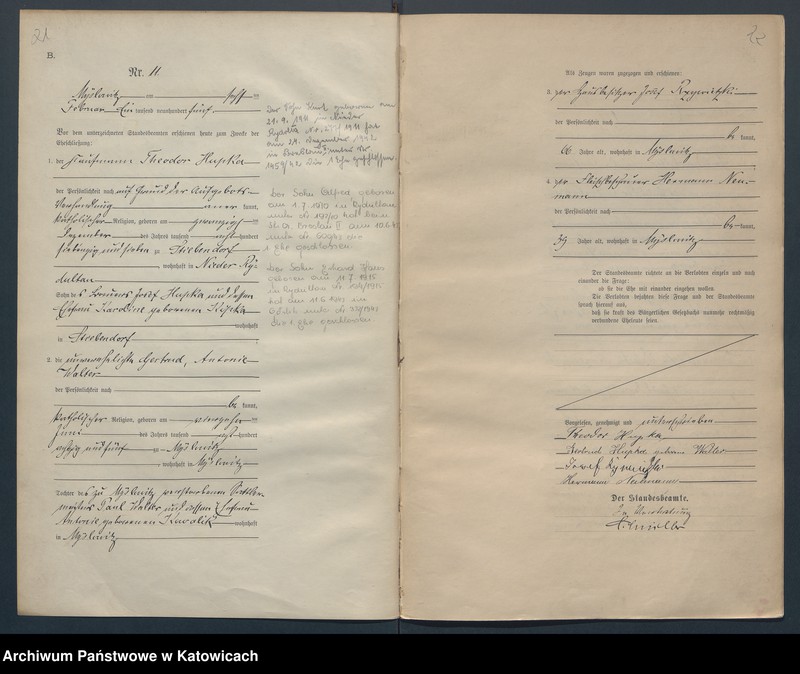 21
B.
Nr. 11.
Myslowitz am
Februar Ein tausend neunhundert fünf
Vor dem unterzeichneten Standesbeamten erschienen heute zum Zwecke der
Eheschließung:
1. der Kaufmann Theodor Hupka
der Persönlichkeit nach auf Grund der Aufgebots-
verhandlung kannt,
katholischer Religion, geboren am zwanzigsten
Dezember des Jahres tausend acht hundert
siebenzig und sieben zu Stiebendorf
, wohnhaft in Nieder Ry-
dultau
Sohn des Josef Hupka und dessen
Ehefrau Karoline geborenen
wohnhaft
in Stiebendorf
2. die unverehelichte Gertrud, Antonie
Walter
der Persönlichkeit nach
be kannt,
katholischer Religion, geboren am vierzehn
Juni des Jahres tausend acht hundert
achtzig und fünf zu Myslowitz
, wohnhaft in Myslowitz
Tochter des zu Myslowitz verstorbenen Sattler-
meisters Paul Walter und dessen Ehefrau
Antonie geborenen wohnhaft
in Myslowitz
Der Sohn geboren am
21. 9. 1911 in Nieder
1911 hat
am 21. Dezember 1942
in Breslau unter Nr
geschlossen.
Der Sohn Alfred geboren
am 1. 7. 1910 in Rydultau
unter Nr hat beim
St. A. Breslau II am
unter Nr die
1. Ehe geschlossen.
Der Sohn Gerhard
geboren am 11. 7. 1915
in Rydultau Nr
hat am in
unter Nr
die 1. Ehe geschlossen.
22
Als Zeugen waren zugezogen und erschienen:
3. der Hausbesitzer Josef
der Persönlichkeit nach
be kannt,
Jahre alt, wohnhaft in Myslowitz
4. der Fleischbeschauer Hermann Neu-
mann
der Persönlichkeit nach
be kannt,
39 Jahre alt, wohnhaft in Myslowitz
Der Standesbeamte richtete an die Verlobten einzeln und nach
einander die Frage:
ob sie die Ehe mit einander eingehen wollen.
Die Verlobten bejahten diese Frage und der Standesbeamte
sprach hierauf aus,
daß sie kraft des Bürgerlichen Gesetzbuchs nunmehr rechtmäßig
verbundene Eheleute seien.
Vorgelesen, genehmigt und unterschrieben
Theodor Hupka
Gertrud Hupka geborene Walter
Josef
Hermann Neumann
Der Standesbeamte.
In Vertretung
Archiwum Państwowe w Katowicach